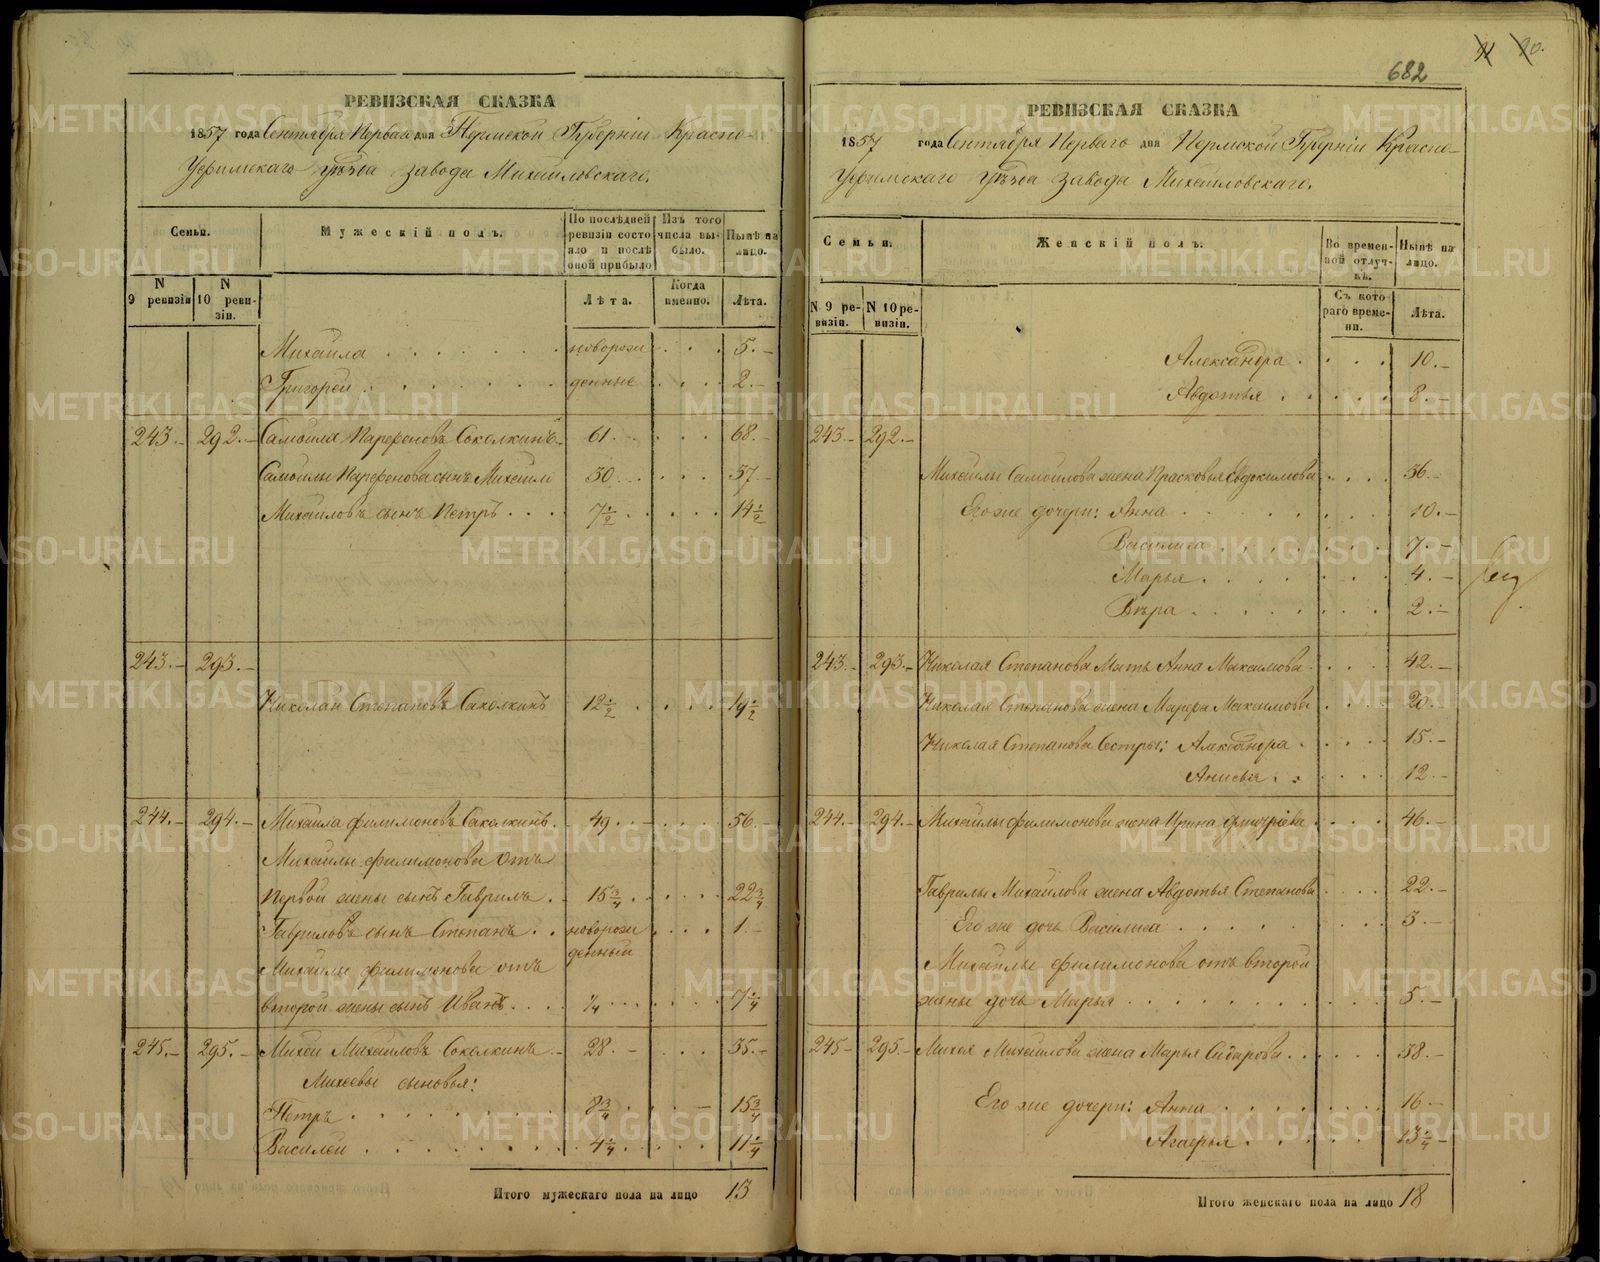 РЕВИЗСКАЯ СКАЗКА
1857 года Сентября Перваго дня Пермской Губерніи Красно-
Уфимскаго уѣзда завода Михайловскаго.
Семьи.
Мужескій полъ.
По послѣдней ревизіи состояло и послѣ оной прибыло
Изъ того числа выбыло.
Нынѣ на лицо.
N 9 ревизіи
N 10 ревизіи.
Лѣта.
Когда именно.
Лѣта.
Михайла новорож 5
Григорей денные 2
243 292 Самойла Парфеновъ Соколкинъ 61 68
Самойлы Парфенова сынъ Михайла 50 57
Михайловъ сынъ Петръ 7 1/2 14 1/2
243 293
Николай Степановъ Соколкинъ 12 1/2 19 1/2
244 294 Михайла Филимоновъ Соколкинъ 49 56
Михайлы Филимонова отъ
первой жены сынъ Гаврила 15 3/4 22 3/4
Гавриловъ сынъ Степанъ новорож 1
денный
Михайлы Филимонова отъ
второй жены сынъ Иванъ 1/4 7 1/4
245 295 Михей Михайловъ Соколкинъ 28 35
Михеевы сыновья:
Петръ 8 3/4 15 3/4
Василей 4 1/4 11 1/4
Итого мужескаго пола на лицо 13
682
РЕВИЗСКАЯ СКАЗКА
1857 года Сентября Перваго дня Пермской Губерніи Красно-
Уфимскаго уѣзда завода Михайловскаго.
Семьи.
Женскій полъ.
Во временной отлучкѣ.
Нынѣ на лицо.
N 9 ревизіи.
N 10 ревизіи.
Съ котораго времени.
Лѣта.
Александра 10
Авдотья 8
243 292
Михайлы Самойлова жена Прасковья Евдокимова 36
Его же дочери: Анна 10
Василиса 7
Марья 4
Вѣра 2
243 293 Николая Степанова мать Анна Максимова 42
Николая Степанова жена Марфа Максимова 20
Николая Степанова сестры: Александра 15
Анисья 12
244 294 Михайлы Филимонова жена Ирина 46
Гаврилы Михайлова жена Авдотья Степанова 22
Его же дочь Василиса 3
Михайлы Филимонова отъ второй
жены дочь Марья 5
245 295 Михея Михайлова жена Марья Сидорова 38
Его же дочери: Анна 16
Агафья 13 1/4
Итого женскаго пола на лицо 18
METRIKI.GASO-URAL.RU